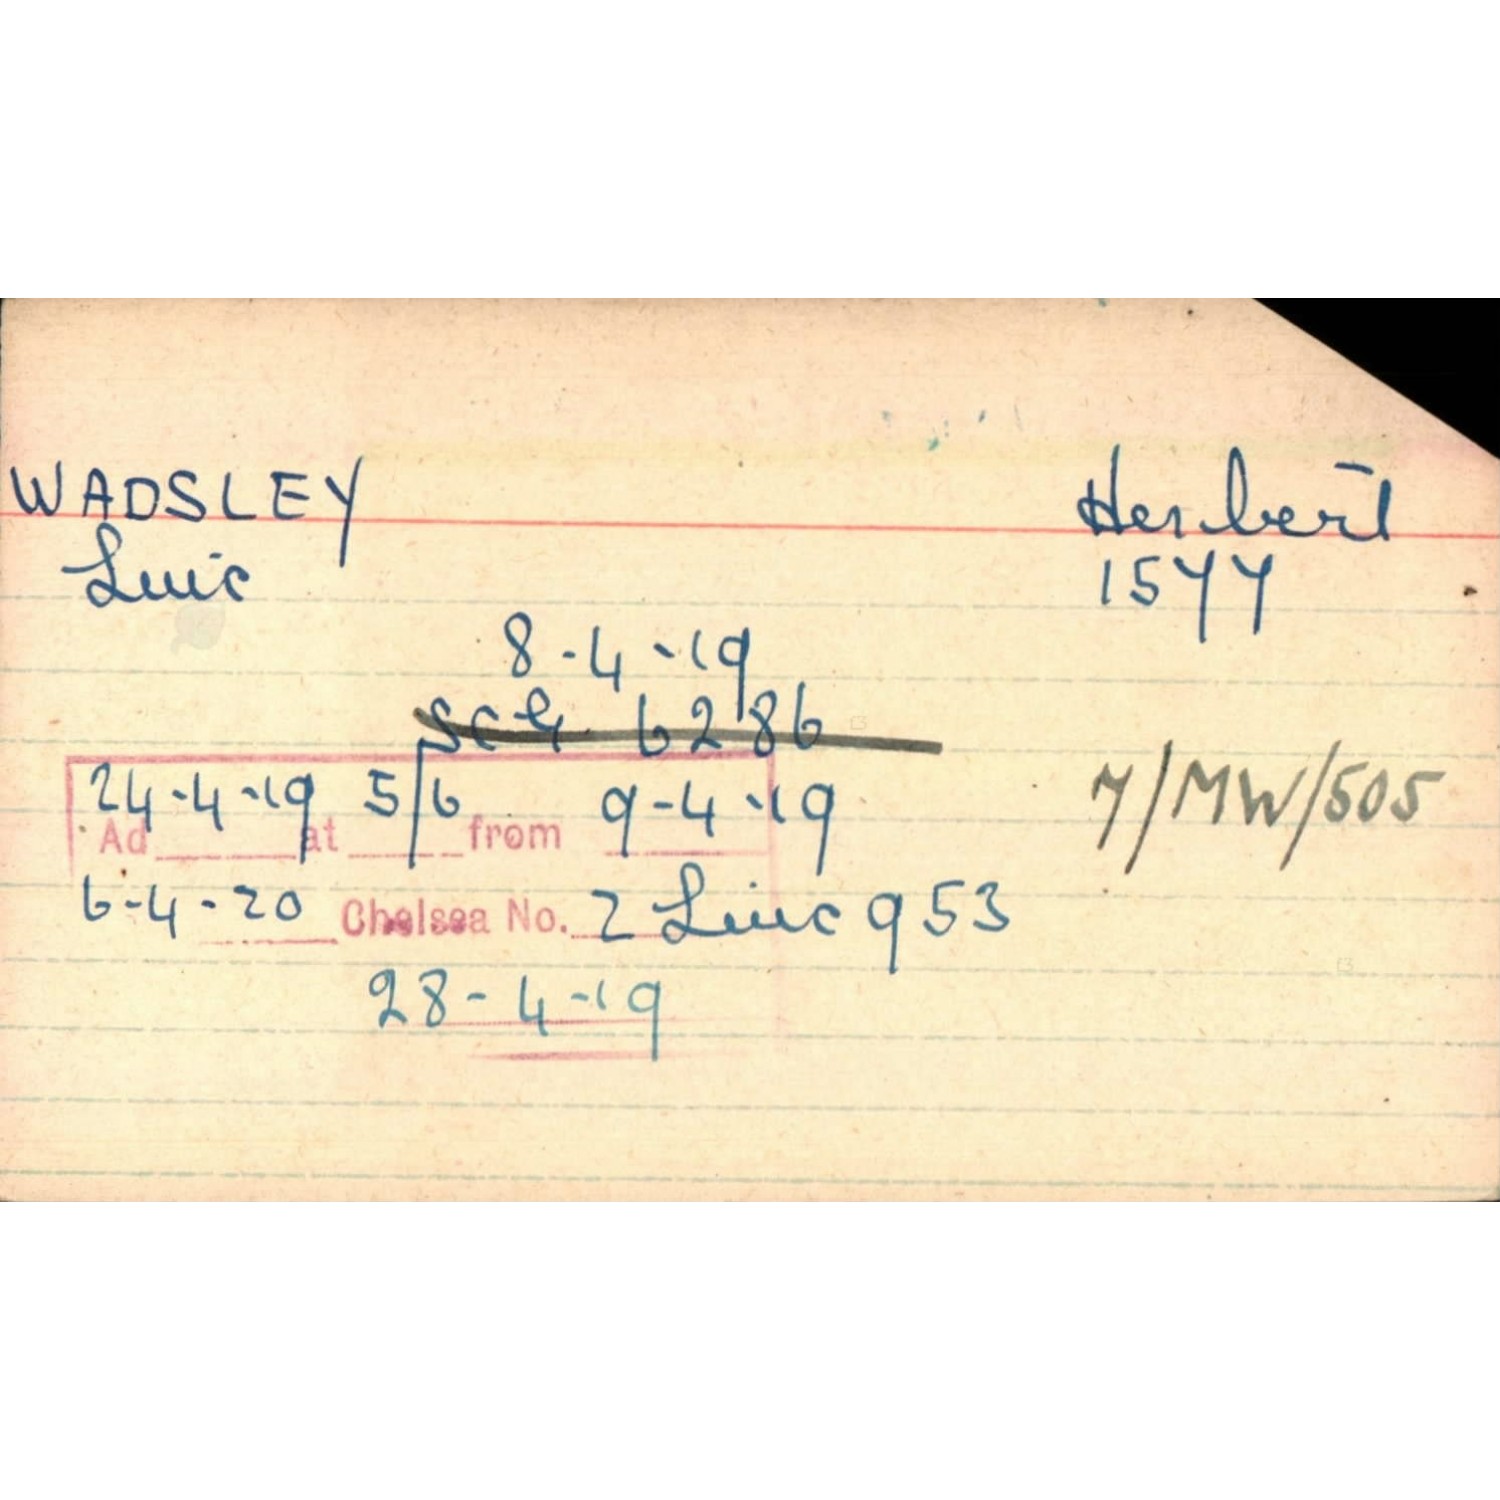 WADSLEY Herbert
Linc 1577
8-4-19
24-4-19 5/6 9-4-19 7/MW/505
Ad at from
6-4-20 Chelsea No. 2 Linc 953
28-4-19